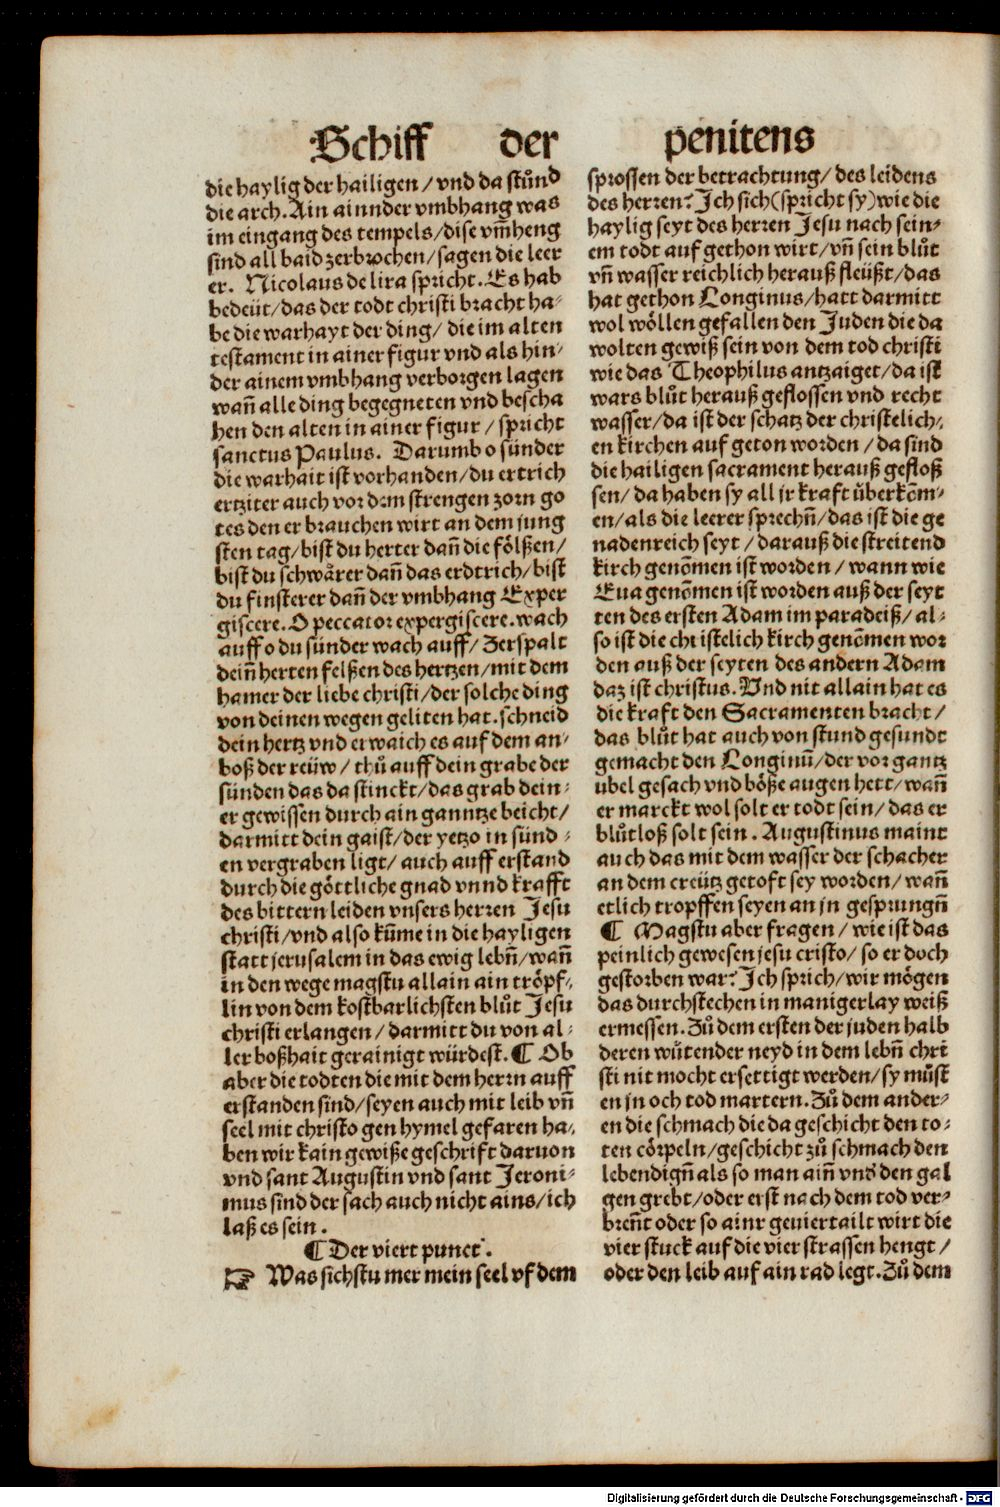 Schiff der penitens
die haylig der hailigen / vnd da stůnd
die arch. Ain ainnder vmbhang was
im eingang des tempels / dise vm̄heng
sind all baid zerbrochen / sagen die leer
er. Nicolaus de lira spricht. Es hab
bedeüt / das der todt christi bracht ha⸗
be die warhayt der ding / die im alten
testament in ainer figur vnd als hin⸗
der ainem vmbhang verborgen lagen
wañ alle ding begegneten vnd bescha
hen den alten in ainer figur / spricht
sanctus Paulus. Darumb o sünder
die warhait ist vorhanden / du ertrich
ertziter auch vor dem strengen zorn go
tes den er brauchen wirt an dem jung
sten tag / bist du herter dañ die fölßen /
bist du schwårer dañ das erdtrich / bist
du finsterer dañ der vmbhang Exper
giscere. O peccator expergiscere. wach
auff o du sünder wach auff / Zerspalt
deiñ herten felßen des hertzen / mit dem
hamer der liebe christi / der solche ding
von deinen wegen geliten hat. schneid
dein hertz vnd erwaich es auf dem an⸗
boß der reüw / thů auff dein grabe der
sünden das da stinckt / das grab dein⸗
er gewissen durch ain ganntze beicht /
darmitt dein gaist / der yetzo in sünd⸗
en vergraben ligt / auch auff erstand
durch die göttliche gnad vnnd krafft
des bittern leiden vnsers herren Jesu
christi / vnd also kum̄e in die hayligen
statt jerusalem in das ewig lebñ / wañ
in den wege magstu allain ain tröpf⸗
lin von dem kostbarlichsten blůt Jesu
christi erlangen / darmitt du von al⸗
ler boßhait gerainigt würdest. ¶ Ob
aber die todten die mit dem herrn auff
erstanden sind / seyen auch mit leib vñ
seel mit christo gen hymel gefaren ha⸗
ben wir kain gewiße geschrift daruon
vnd sant Augustin vnd sant Jeroni⸗
mus sind der sach auch nicht ains / ich
laß es sein.
¶ Der viert punct.
☞ Was sichstu mer mein seel vf dem
sprossen der betrachtung / des leidens
des herren? Ich sich (spricht sy) wie die
haylig seyt des herren Jesu nach sein⸗
em todt auf gethon wirt / vñ sein blůt
vñ wasser reichlich herauß fleüßt / das
hat gethon Longinus / hatt darmitt
wol wöllen gefallen den Juden die da
wolten gewiß sein von dem tod christi
wie das Theophilus antzaiget / da ist
wars blůt herauß geflossen vnd recht
wasser / da ist der schatz der christelich⸗
en kirchen auf geton worden / da sind
die hailigen sacrament herauß gefloß
sen / da haben sy all jr kraft überkōm⸗
en / als die leerer sprechñ / das ist die ge
nadenreich seyt / darauß die streitend
kirch genōmen ist worden / wann wie
Eua genōmen ist worden auß der seyt
ten des ersten Adam im paradeiß / al⸗
so ist die christelich kirch genōmen wor
den auß der seyten des andern Adam
daz ist christus. Vnd nit allain hat es
die kraft den Sacramenten bracht /
das blůt hat auch von stund gesundt
gemacht den Longinū / der vor gantz
übel gesach vnd böße augen hett / wañ
er marckt wol solt er todt sein / das er
blůtloß solt sein. Augustinus maint
auch das mit dem wasser der schacher
an dem creütz getoft sey worden / wañ
etlich tropffen seyen an jn gesprungñ
¶ Magstu aber fragen / wie ist das
peinlich gewesen jesu cristo / so er doch
gestorben war? Ich sprich / wir mögen
das durchstechen in manigerlay weiß
ermessen. Zů dem ersten der juden halb
deren wůtender neyd in dem lebñ chri
sti nit mocht ersettigt werden / sy můst
en jn och tod martern. Zů dem ander⸗
en die schmach die da geschicht den to⸗
ten cörpeln / geschicht zů schmach den
lebendigñ als so man aiñ vnd̕ den gal
gen grebt / oder erst nach dem tod ver⸗
breñt oder so ainr geuiertailt wirt die
vier stuck auf die vier strassen hengt /
oder den leib auf ain rad legt. Zů dem
Digitalisierung gefördert durch die Deutsche Forschungsgemeinschaft - DFG